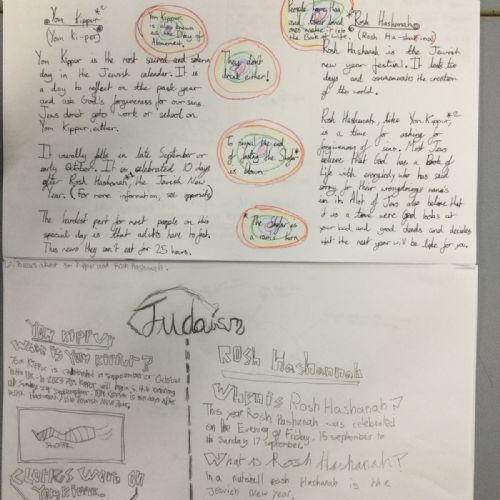 Yom Kippur *2
(Yom Ki-per)
Yom Kippur is the most sacred and solemn
day in the Jewish calendar. It is
a day to reflect on the past year
and ask God's forgiveness for our sins.
Jews don't go to work or school on
Yom Kippur either.
It usually falls in late September or
early October. It is celebrated 10 days
after Rosh Hashanah, the Jewish New
Year. (For more information, see opposite)
The hardest part for most people on this
special day is that adults have to fast.
This means they can't eat for 25 hours.
Yom Kippur
is also known
as the Day of
Atonement.
They don't
drink either!
To signal the end
of fasting the Shofar*
is blown.
* The Shofar is
a ram's horn
People hope they
and their loved
ones make it into
the Book of Life
Rosh Hashanah
(Rosh Ha-shar-nar)
Rosh Hashanah is the Jewish
new year festival. It lasts two
days and commemorates the creation
of the world.
Rosh Hashanah, like Yom Kippur, *2
is a time for asking for
forgiveness of sins. Most Jews
believe that God has a Book of
Life with everybody who has said
sorry for their wrongdoings name's
in it. Most of Jews also believe that
it is a time were God looks at
your bad and good deeds and decides
what the next year will be like for you.
Judaism
Yom Kippur
When is Yom Kippur?
Yom Kippur is celebrated in September or October
Yom Kippur is ten days after
Rosh Hashanah, the Jewish New Year.
SHOFAR
Clothes worn on
Yom Kippur
Rosh Hashannah
When is Rosh Hashanah?
This year Rosh Hashanah was celebrated
on the Evening of Friday, 15 september to
to Sunday 17 september.
What is Rosh Hashanah?
In a nutshell Rosh Hashanah is the
Jewish new year.